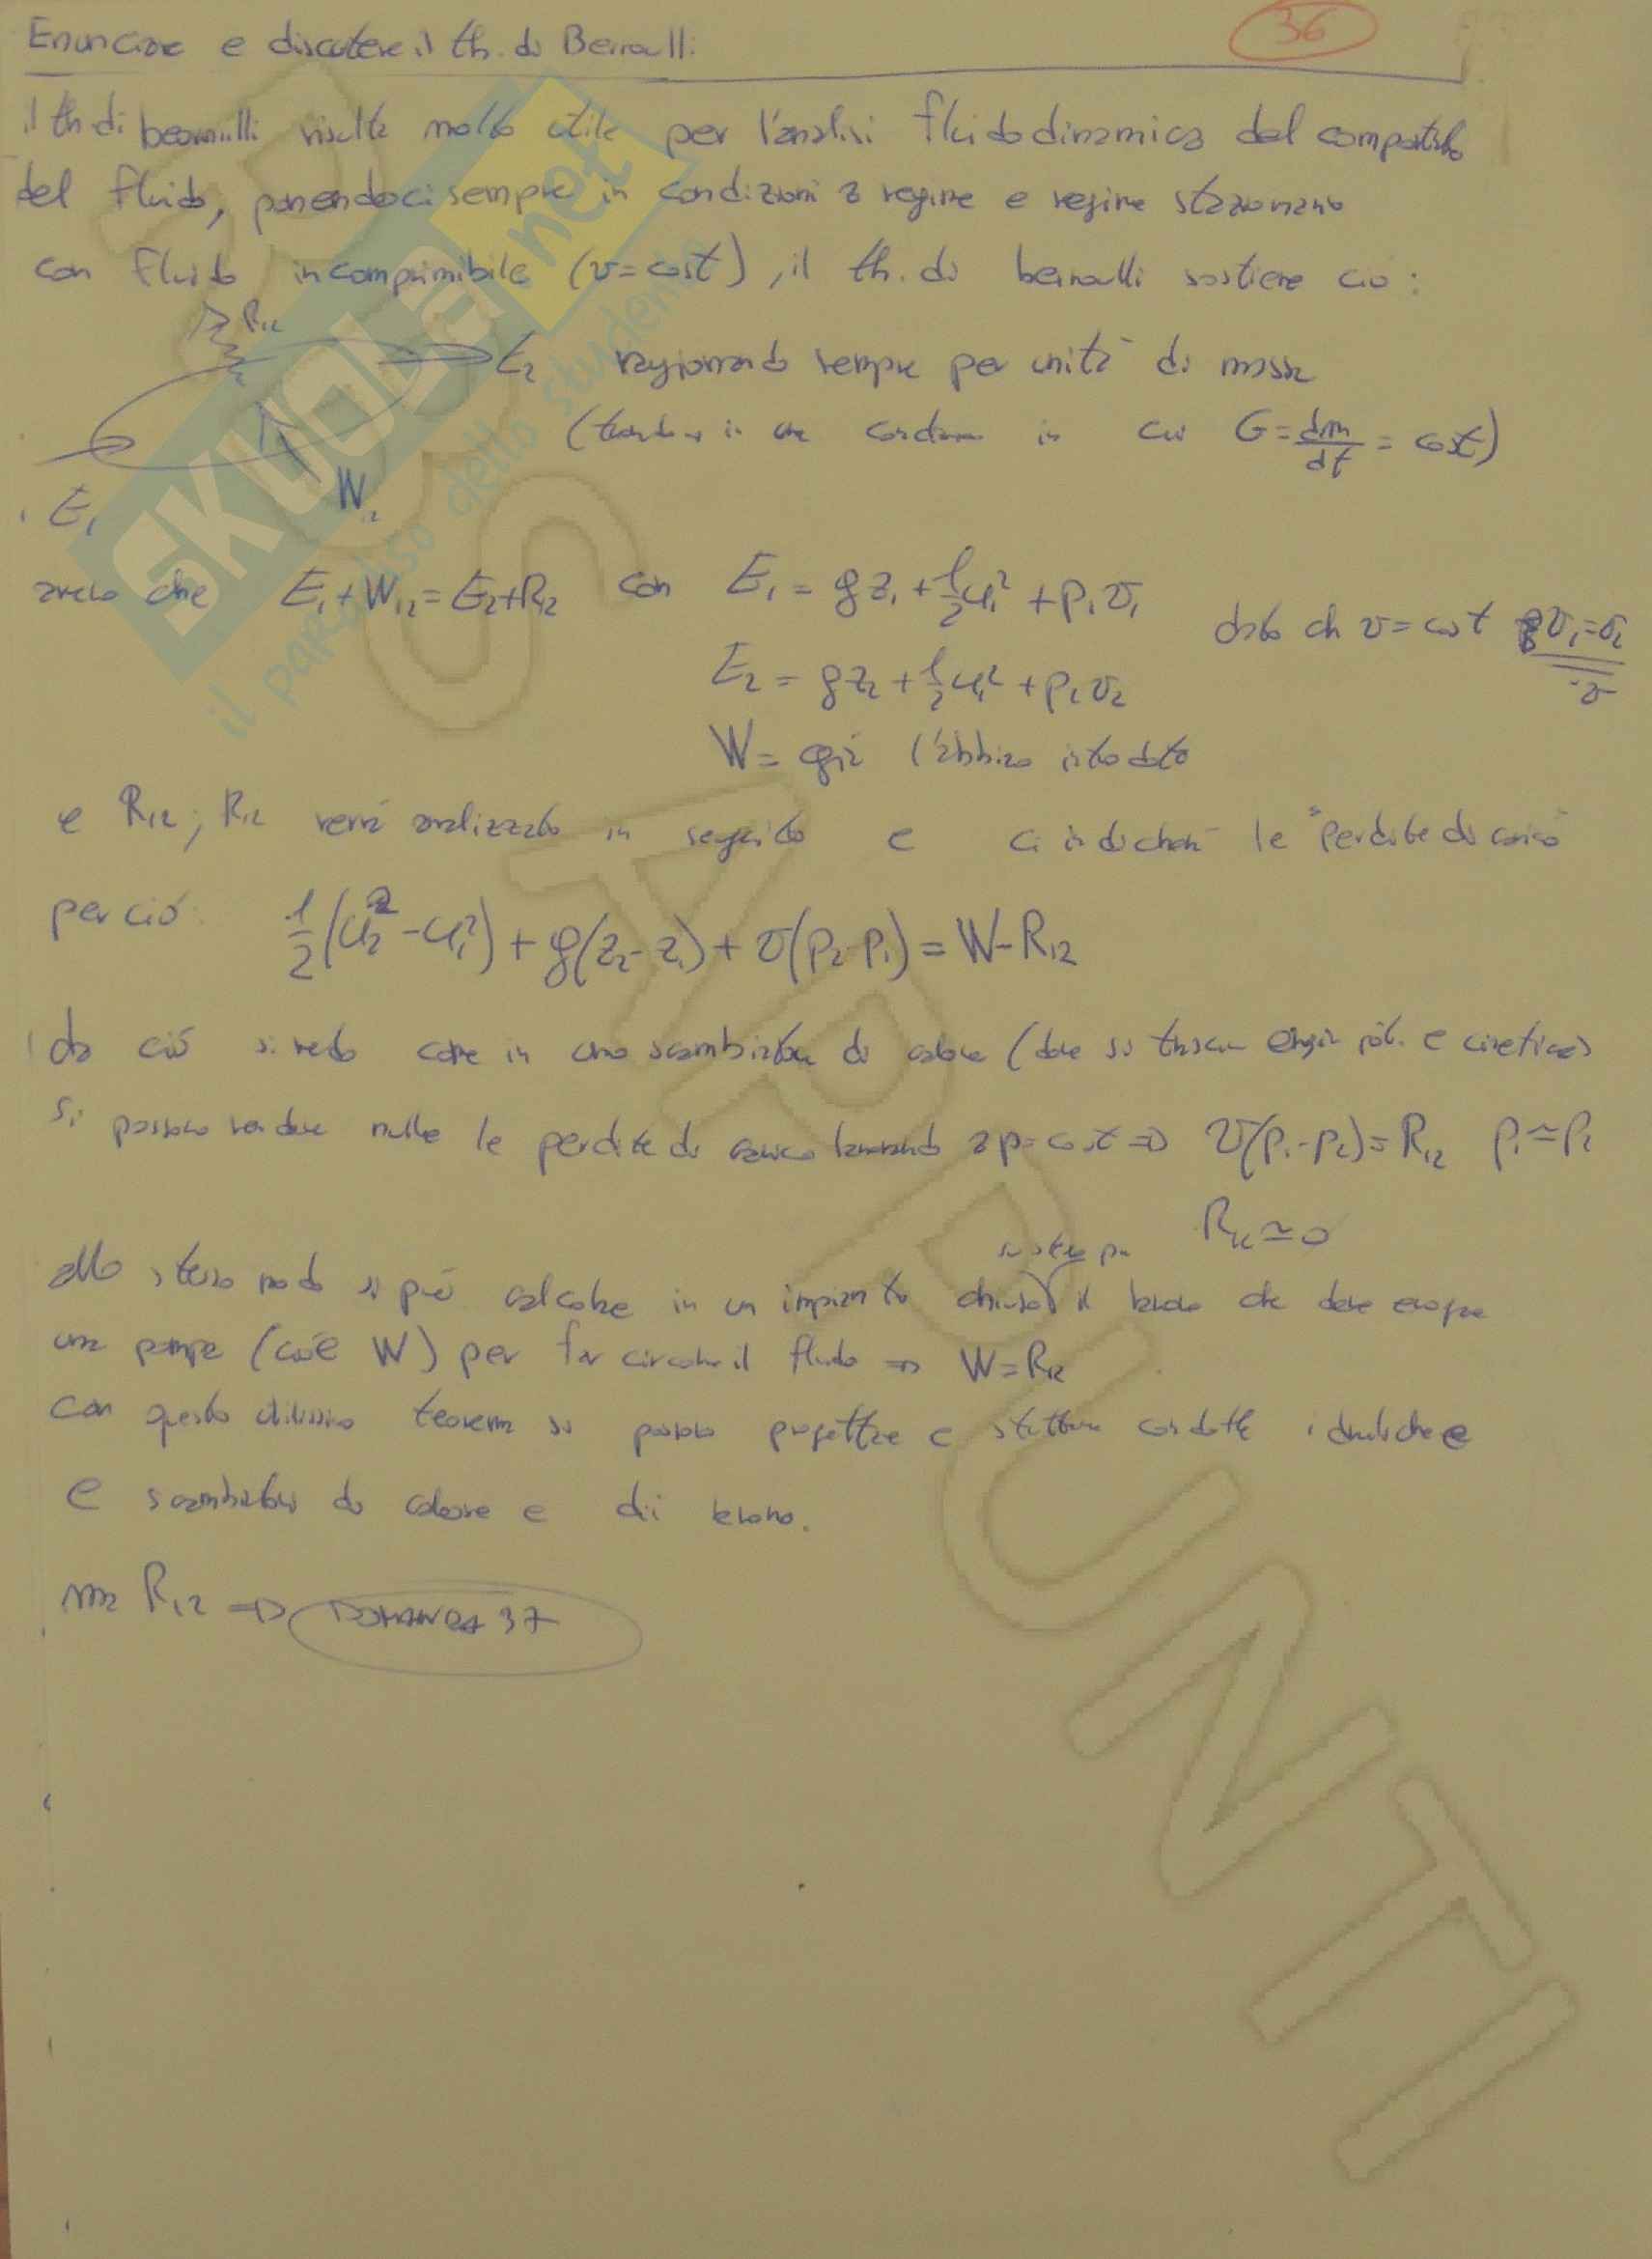 Enunciare e discutere il th. di Bernoulli.
36
il th di bernoulli risulta molto utile per l'analisi fluidodinamica del comportamento
del fluido, ponendoci sempre in condizioni a regime e regime stazionario
con fluido incomprimibile (v=cost), il th. di bernoulli sostiene ciò:
R12
E2 ragionando sempre per unità di massa
in cui G=dm/dt = cost)
W12
E1
che E1+W12=E2+R12 con E1 = gz1 + 1/2 u1² + p1v1
dato ch v=cost v1=v2
=v
E2 = gz2 + 1/2 u1² + p2v2
W = già l'abbiamo introdotto
e R12; R12 verrà analizzato in seguito e ci indicherà le "perdite di carico"
perciò: 1/2(u2²-u1²)+g(z2-z1)+v(p2-p1)=W-R12
da ciò si vede come in uno scambiatore di calore (dove si trascura energia pot. e cinetica)
si possono rendere nulle le perdite di carico lavorando a p=cost => v(p1-p2)=R12 p1≃p2
R12≃0
allo stesso modo si può calcolare in un impianto chiuso il lavoro che deve erogare
una pompa (cioè W) per far circolare il fluido => W=R12
con questo utilissimo teorema si possono progettare e condotte idrauliche e
e scambiatori di calore e di lavoro.
ma R12 => DOMANDA 37
SKUOLA.net
il paradiso dello studente
APPUNTI